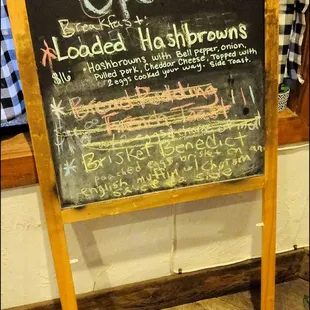 Breakfast:
*Loaded Hashbrowns
$16 • Hashbrowns with Bell pepper, onion,
Pulled pork, Cheddar Cheese, Topped with
2 eggs cooked your way. Side Toast.
* Bread Pudding
French Toast
* Brisket Benedict
poached eggs, brisket on an
english muffin